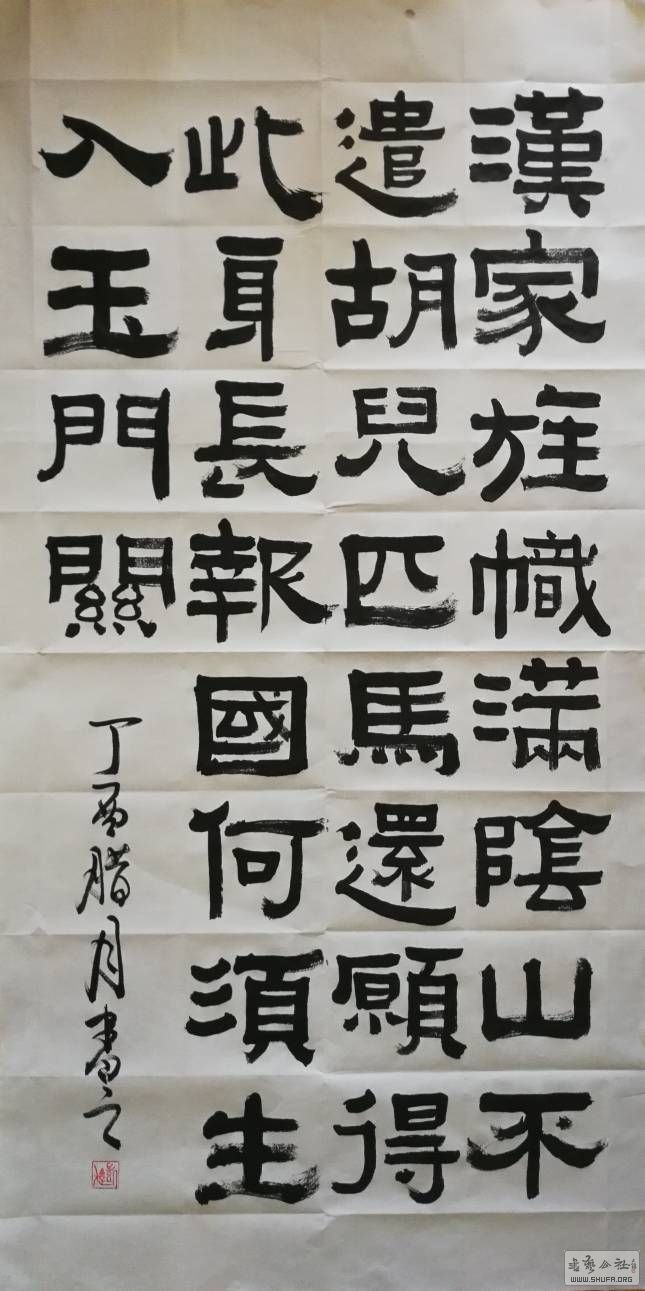 漢家旌幟滿陰山不
遣胡兒匹馬還願得
此身長報國何須生
入玉門關
丁酉腊月書之
WWW.SHUFA.ORG